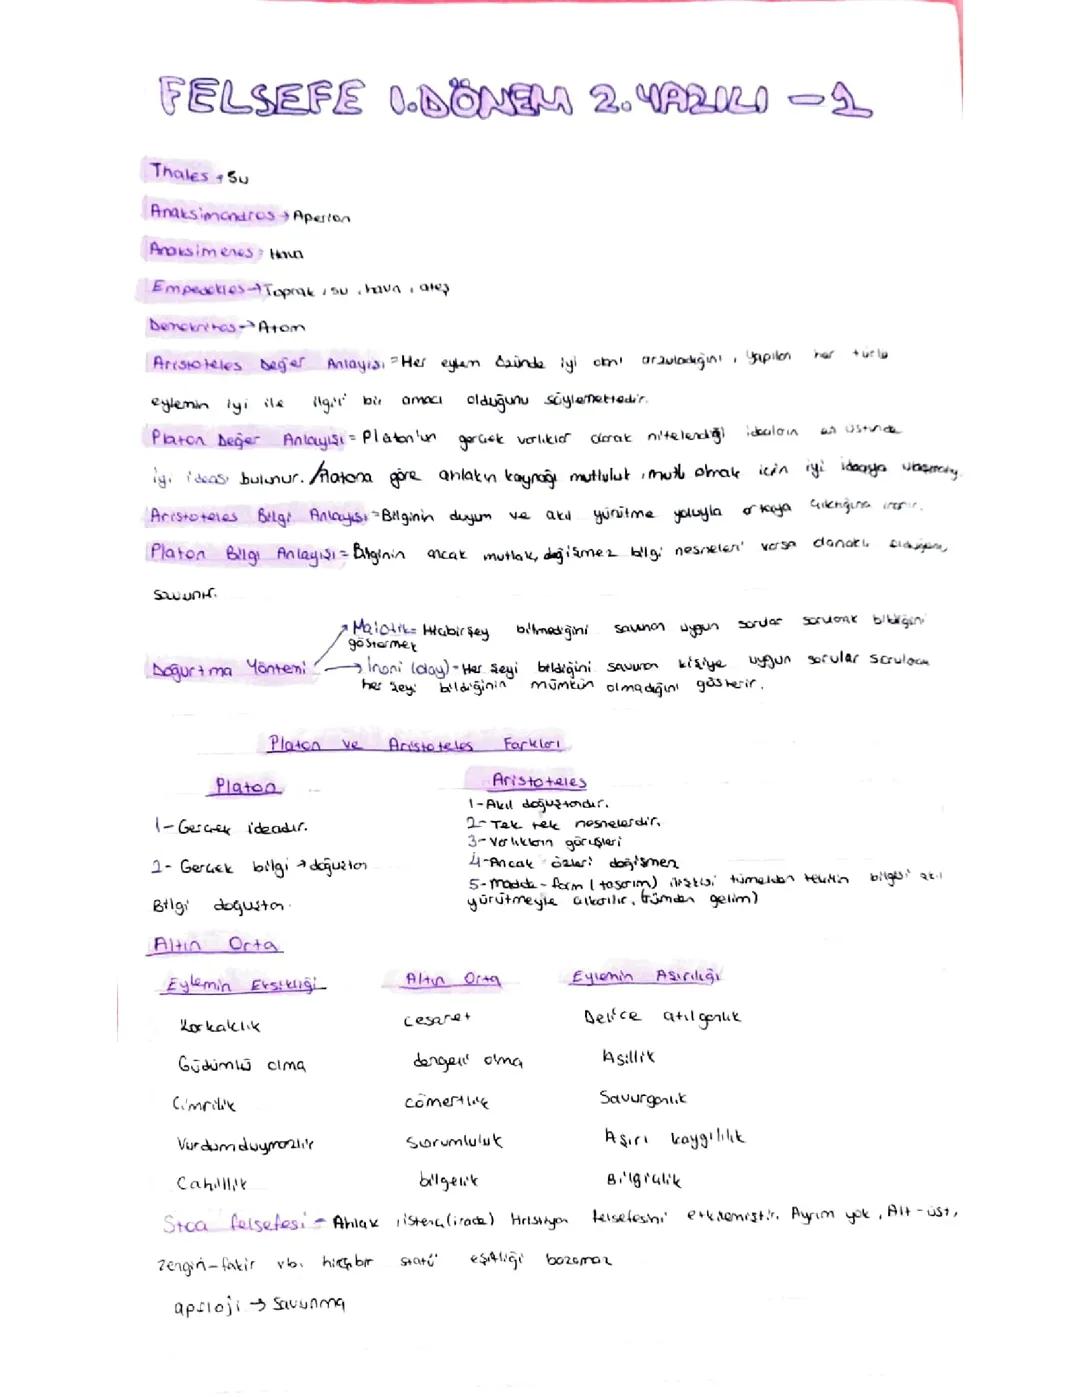 FELSEFE 1.DÖNEM 2.YAZILI -1
Thales → Su
Anaksimandros → Aperion
Anaksimenes → Hava
Empedokles → Toprak, su, hava, ateş
Demokritos → Atom
Aristoteles Değer Anlayışı = Her eylem özünde iyi olanı arzuladığını, yapılan her türlü
eylemin iyi ile ilgili bir amacı olduğunu söylemektedir.
Platon Değer Anlayışı = Platon'un gerçek varlıklar olarak nitelendiği ideaların en üstünde
iyi ideası bulunur. Platona göre ahlakın kaynağı mutluluk, mutlu olmak için iyi ideaya ulaşmalıy.
Aristoteles Bilgi Anlayışı = Bilginin duyum ve akıl yürütme yoluyla ortaya çıktığına inanır.
Platon Bilgi Anlayışı = Bilginin ancak mutlak, değişmez bilgi nesneleri varsa olanaklı olduğunu,
savunur.
Maiotik = Hiçbir şey bilmediğini savunan uygun sorular sorularak bildiğini
göstermek
Doğurtma Yöntemi → İroni (alay) - Her şeyi bildiğini savunan kişiye uygun sorular sorularak
her şeyi bildiğinin mümkün olmadığını gösterir.
Platon ve Aristoteles Farkları
Platon Aristoteles
1-Akıl doğuştandır.
1- Gerçek ideadır. 2- Tek tek nesnelerdir.
3- Varlıkların görüşleri
2- Gerçek bilgi → doğuştan 4-Ancak özleri değişmez
5- madde - form (tasarım) ilişkisi tümelden tekilin bilgisi akıl
Bilgi doğuştan. yürütmeyle çıkarılır. (tümden gelim)
Altın Orta
Eylemin Eksikliği Altın Orta Eylemin Aşırılığı
Korkaklık cesaret Delice atılganlık
Güdümlü olma dengeli olma Asillik
Cimrilik cömertlik Savurganlık
Vurdumduymazlık Sorumluluk Aşırı kaygılılık
Cahillik bilgelik Bilgiçlik
Stoa felsefesi - Ahlak, istenç(irade) Hristiyan felsefesini etkilemiştir. Ayrım yok, Alt-üst,
zengin-fakir vb. hiçbir statü eşitliği bozamaz
apoloji → Savunma